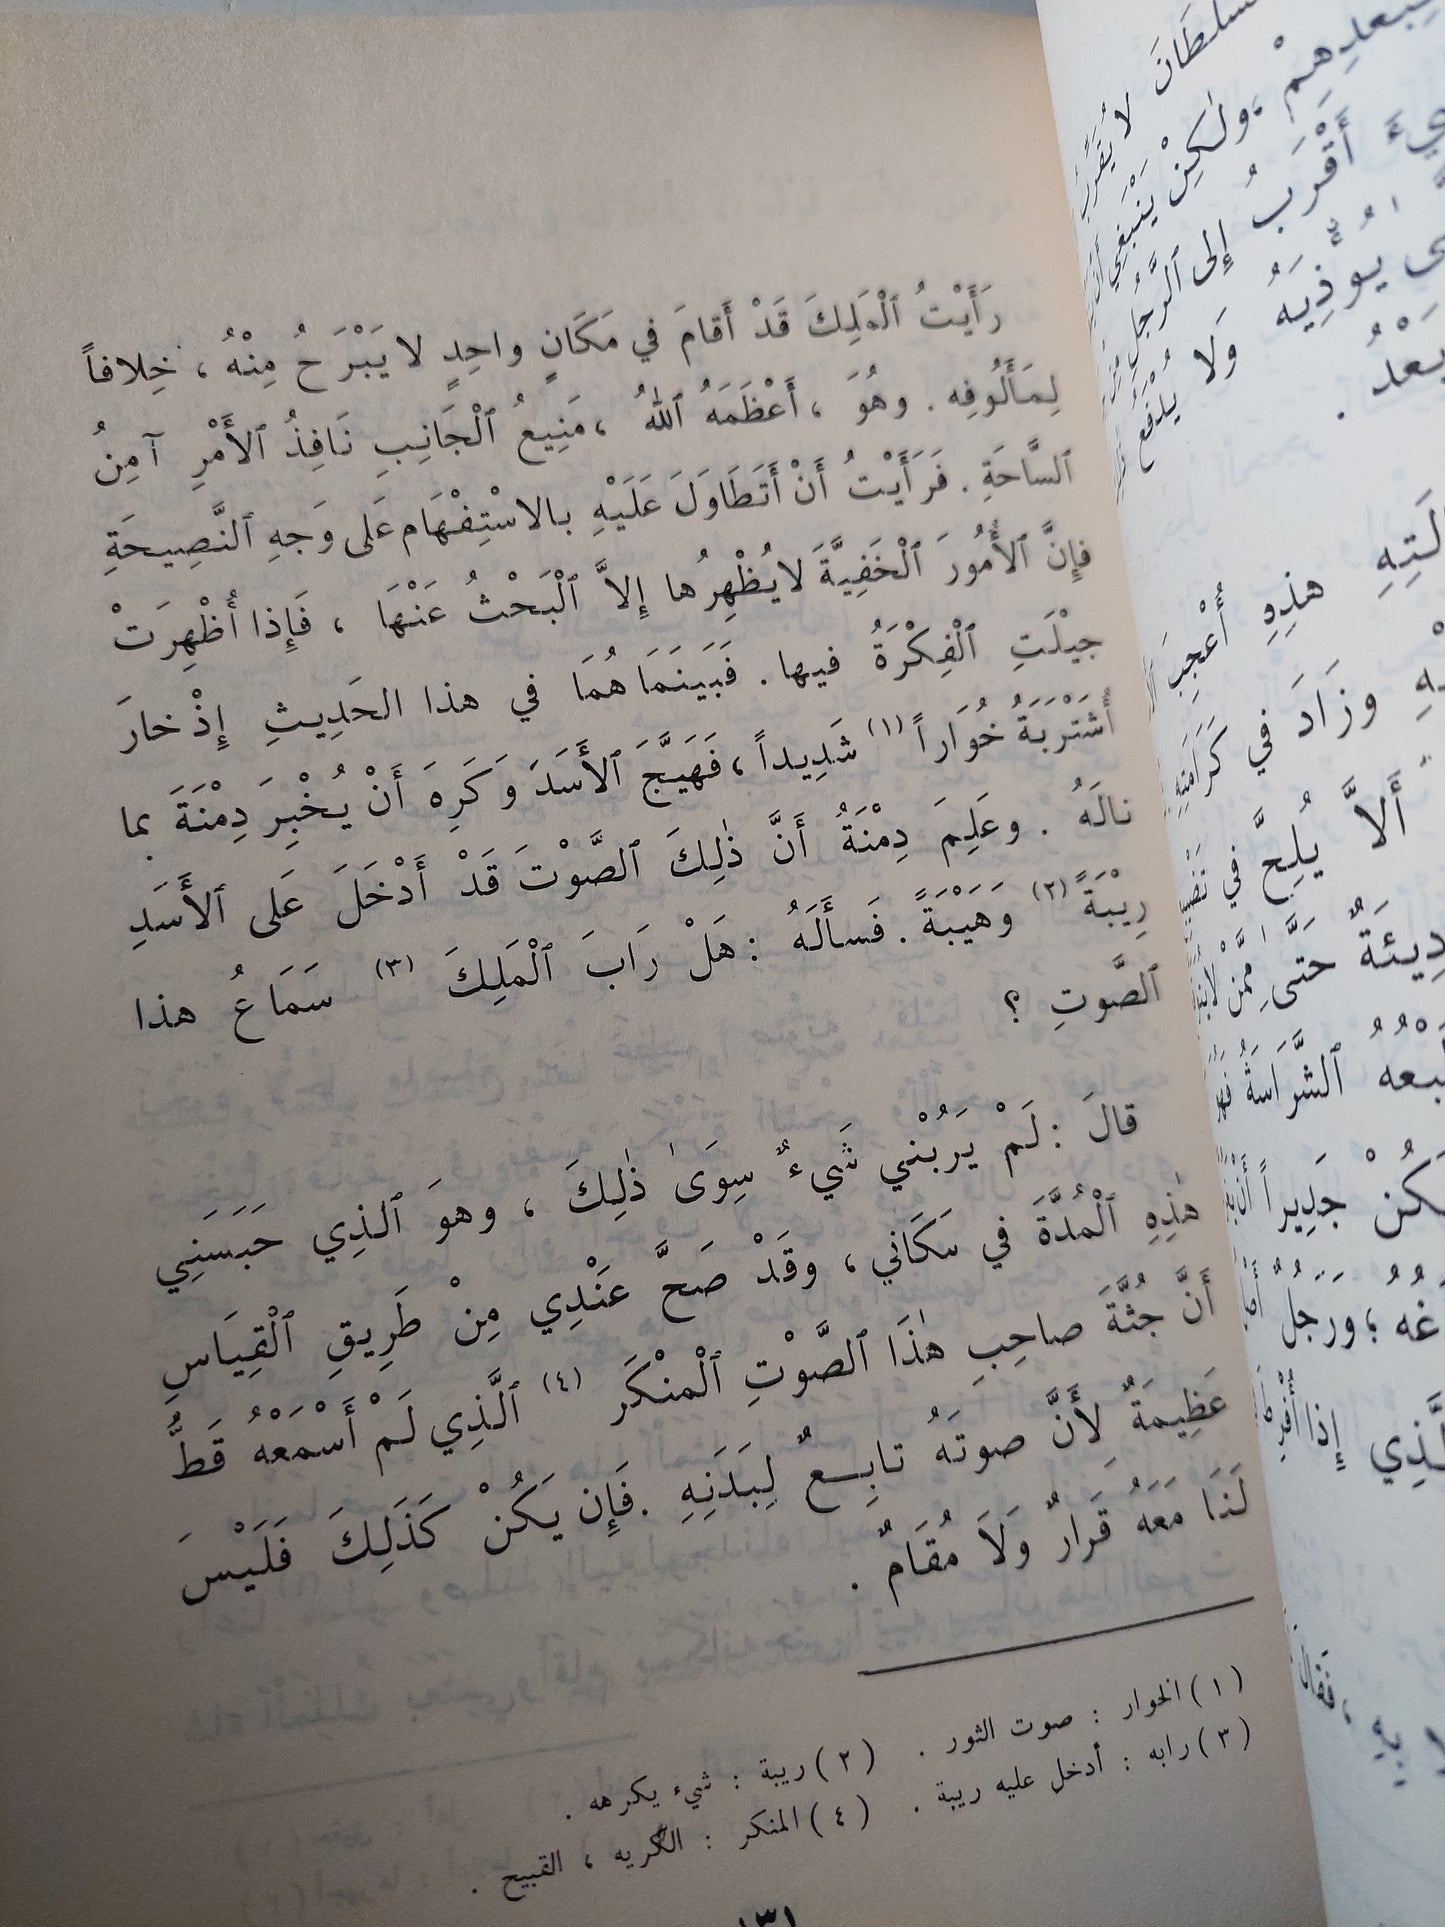 رَأَيْتُ ٱلْمَلِكَ قَدْ أَقامَ في مَكَانٍ واحِدٍ لا يَبْرَحُ مِنْهُ ، خِلافاً
لِمَأْلُوفِه . وهُوَ ، أَعْظَمَهُ ٱللهُ ، مَنِيعُ ٱلْجَانِبِ نَافِذُ ٱلأَمْرِ آمِنُ
ٱلسَّاحَةِ . فَرَأَيْتُ أَنْ أَتَطَاوَلَ عَلَيْهِ بالاسْتِفْهَامِ عَلى وَجهِ ٱلنَّصِيحَةِ
فإِنَّ ٱلأُمُورَ ٱلْخَفِيَّةَ لا يُظْهِرُها إِلاَّ ٱلْبَحْثُ عَنْهَا ، فَإِذا أُظْهِرَتْ
جيْلَتِ ٱلْفِكْرَةُ فيها . فَبَيَنَمَا هُمَا في هذا الحَدِيثِ إِذْ خارَ
أَشَتْرَبَةُ خُوَاراً (١) شَدِيداً ، فَهَيَّجَ ٱلأَسَدَ وَكَرِهَ أَنْ يُخْبِرَ دِمْنَةَ بما
نالَهُ . وعَلِمَ دِمْنَةُ أَنَّ ذٰلِكَ ٱلصَّوْتَ قَدْ أَدْخَلَ عَلى ٱلأَسَدِ
رِيْبَةً (٢) وَهَيَْبَةً . فَسأَلَهُ : هَلْ رَابَ ٱلْمَلِكَ (٣) سَمَاعُ هذا
ٱلصَّوتِ ؟
قالَ : لَمْ يَرُبْني شَيءٌ سِوَىٰ ذٰلِكَ ، وهوَ ٱلذِي حَبَسَنِي
هٰذِهِ ٱلْمُدَّةَ في مَكَاني ، وقَدْ صَحَّ عَنْدِي مِنْ طَرِيقِ ٱلْقِيَاسِ
أَنَّ جُثَّةَ صاحِبِ هٰذَا ٱلصَّوْتِ ٱلْمنْكَرِ (٤) ٱلَّذِي لَمْ أَسْمَعْهُ قَطُّ
عَظِيمَةٌ لأَنَّ صوتَهُ تابِعٌ لِبَدَنِهِ . فَإِن يَكُنْ كَذَلِكَ فَلَيْسَ
لَنَا مَعَهُ قَرارٌ وَلَا مُقَامٌ .
(١) الخوار : صوت الثور . (٢) ريبة : شيء يكرهه .
(٣) رابه : أدخل عليه ريبة . (٤) المنكر : الكريه ، القبيح .
١٣١
لا يُقَرِّبُ
ولٰكِنْ يَنْبَغِي
أَقْرَبُ إِلى ٱلرَّجُلِ
يُؤْذِيَهُ وَلا يُدْفَعُ
هذِهِ أُعْجِبَ
وزَادَ في كَرَامَتِهِ
أَلاَّ يُلِحَّ في
حَتَّى
ٱلشَّرَاسَةُ
جَدِيراً
ورَجُلٌ
إِذا
بِهِ ، فَقالَ